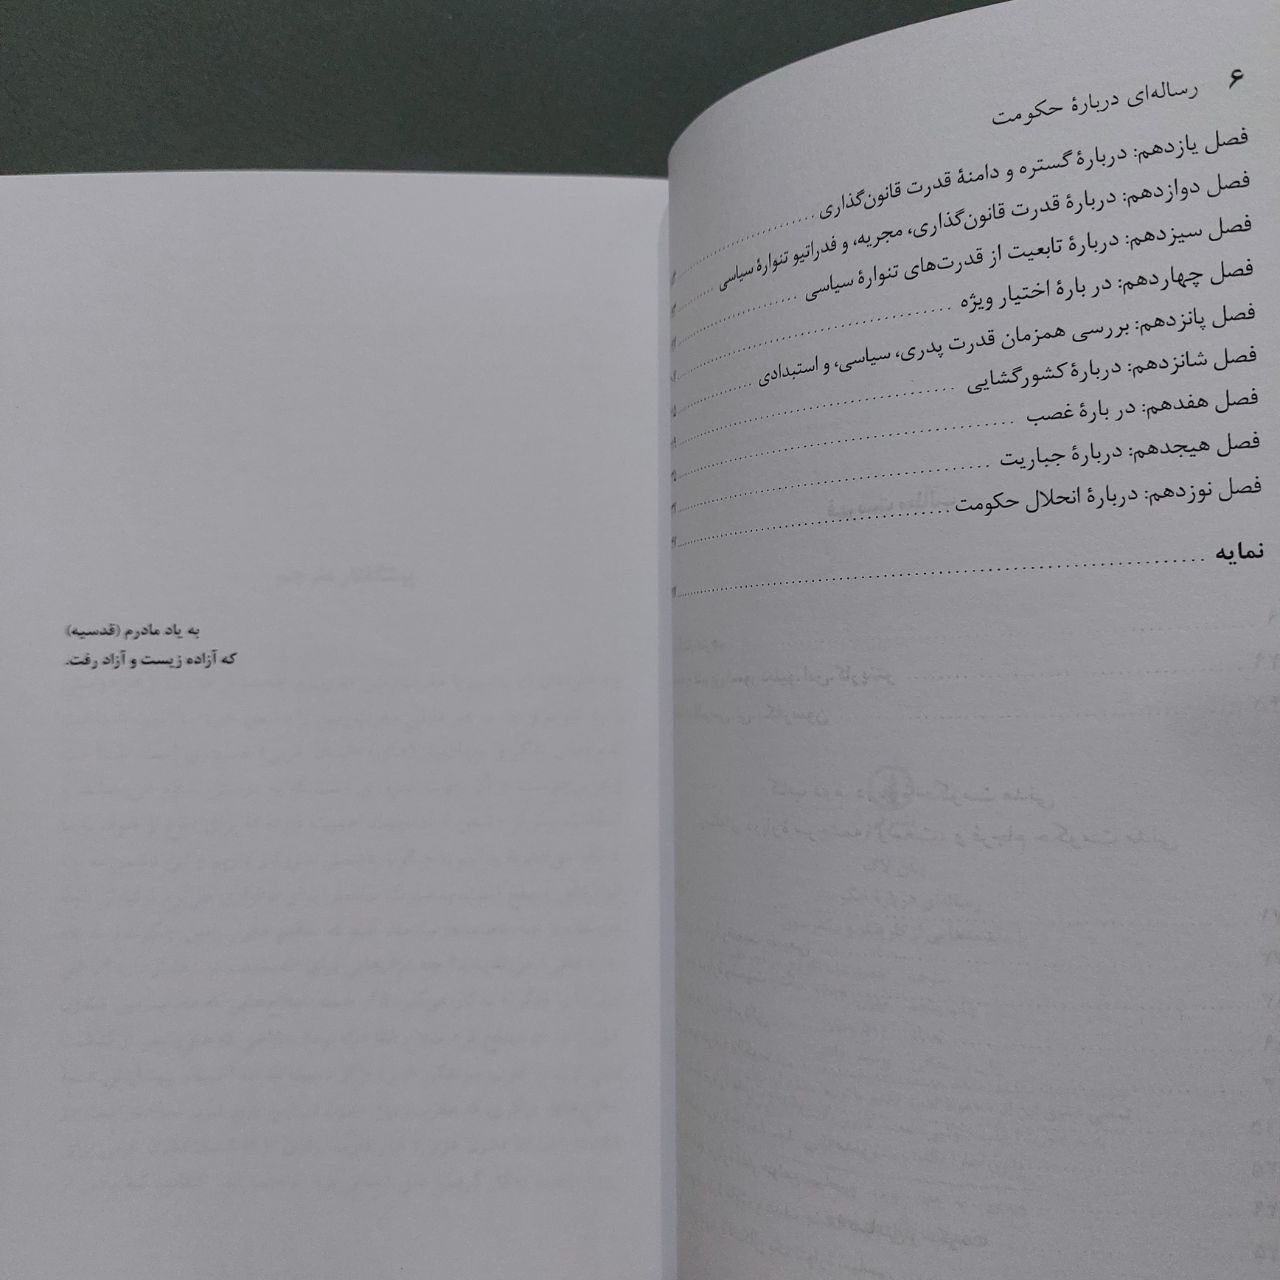 ۶ رساله‌ای دربارهٔ حکومت
فصل یازدهم: دربارهٔ گستره و دامنهٔ قدرت قانون‌گذاری
فصل دوازدهم: دربارهٔ قدرت قانون‌گذاری، مجریه، و فدراتیو تنوارهٔ سیاسی
فصل سیزدهم: دربارهٔ تابعیت از قدرت‌های تنوارهٔ سیاسی
فصل چهاردهم: در بارهٔ اختیار ویژه
فصل پانزدهم: بررسی همزمان قدرت پدری، سیاسی، و استبدادی
فصل شانزدهم: دربارهٔ کشورگشایی
فصل هفدهم: در بارهٔ غصب
فصل هیجدهم: دربارهٔ جباریت
فصل نوزدهم: دربارهٔ انحلال حکومت
نمایه
به یاد مادرم (قدسیه)
که آزاده زیست و آزاد رفت.